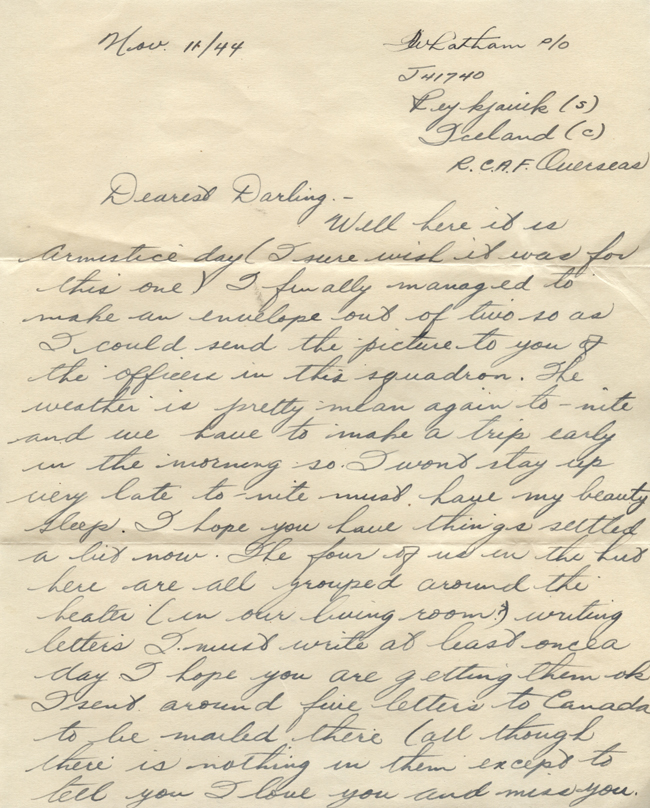 Nov. 11/44
W Latham P/O
J41740
Reykjavik (S)
Iceland (C)
R.C.A.F. Overseas
Dearest Darling. -
Well here it is
Armistice day (I sure wish it was for
this one) I finally managed to
make an envelope out of two so as
I could send the picture to you of
the officers in this squadron. The
weather is pretty mean again to-nite
and we have to make a trip early
in the morning so I wont stay up
very late to-nite must have my beauty
sleep. I hope you have things settled
a bit now. The four of us in the hut
here are all grouped around the
heater (in our living room?) writing
letters I must write at least once a
day I hope you are getting them ok
I sent around five letters to Canada
to be mailed there (all though
there is nothing in them except to
tell you I love you and miss you.